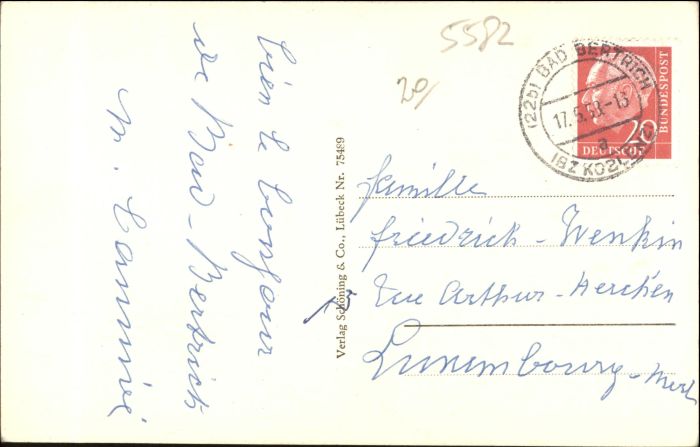 bien le bonjour
de Bad-Bertrich
5582
20/
(22b) BAD BERTRICH
17.5.58-13
a
(BZ KOBLENZ)
20
DEUTSCHE
BUNDESPOST
Verlag Schöning & Co., Lübeck Nr. 75489
famille
Friedrich-Wenkin
Rue Arthur-Herchen
Luxembourg-Merl